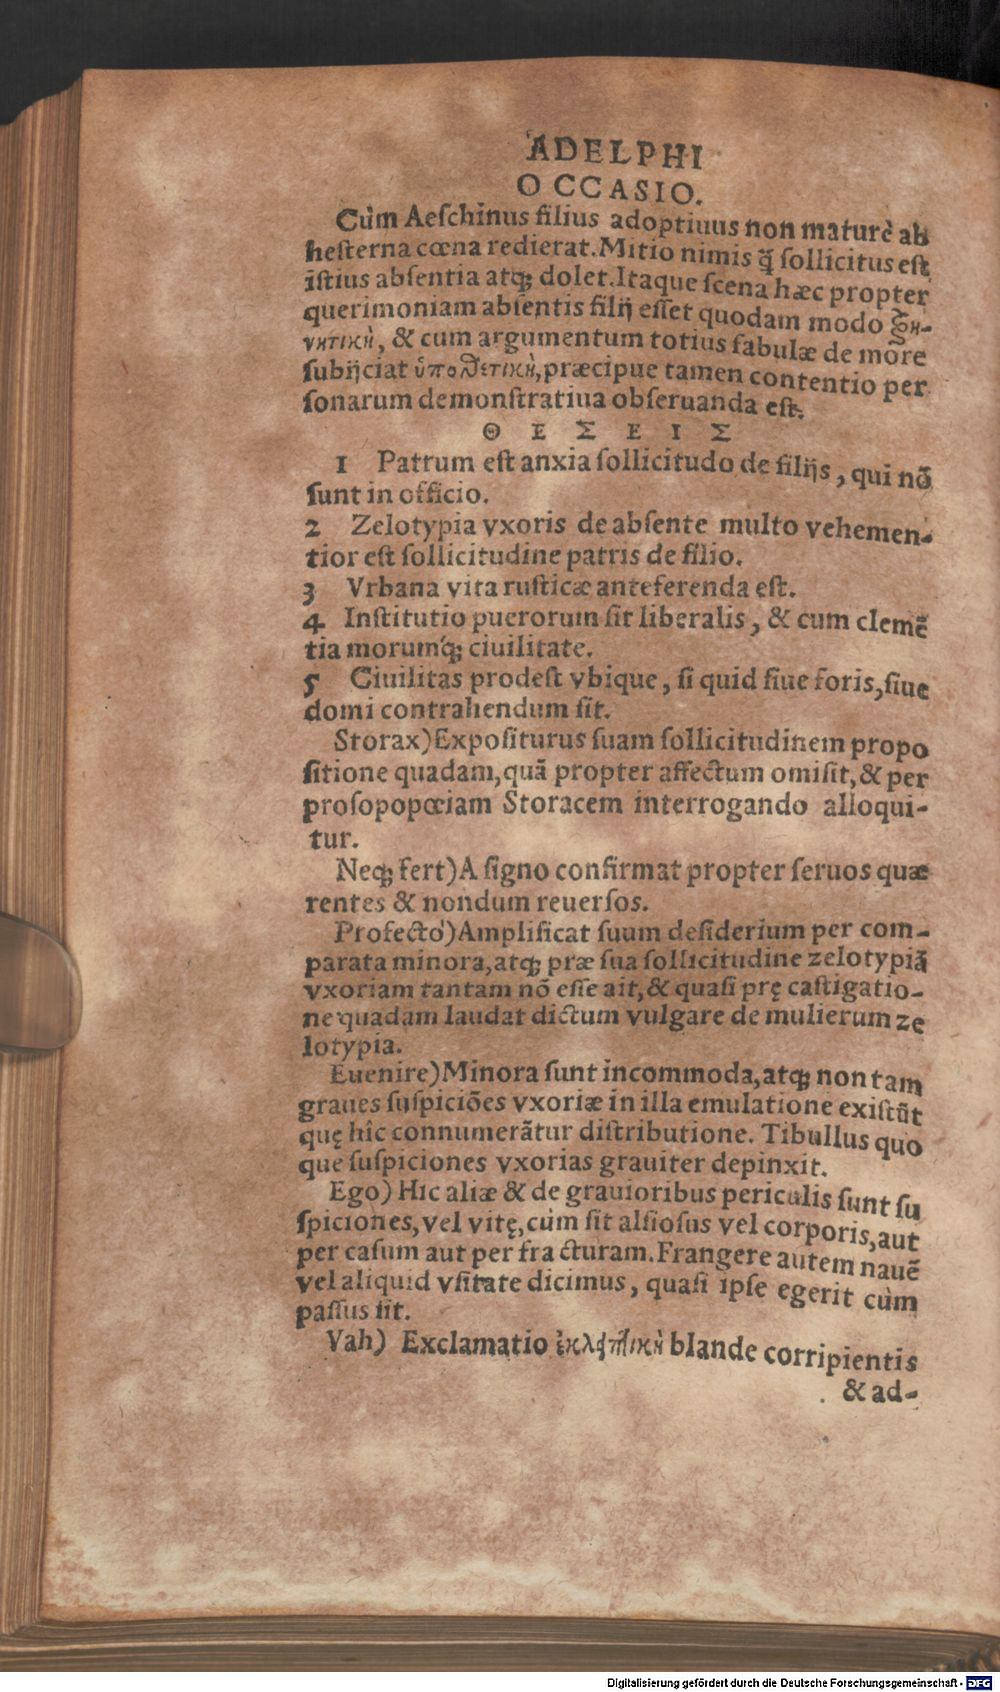 ADELPHI
OCCASIO.
Cùm Aeſchinus filius adoptiuus non maturè ab
heſterna cœna redierat. Mitio nimis q̃ ſollicitus eſt
iſtius abſentia atq; dolet. Itaque ſcena hæc propter
querimoniam abſentis filij eſſet quodam modo θρη-
νητικὴ, & cum argumentum totius fabulæ de more
ſubijciat ὑποθετικὴ, præcipue tamen contentio per
ſonarum demonſtratiua obſeruanda eſt.
ΘΕΣΕΙΣ
1 Patrum eſt anxia ſollicitudo de filijs, qui nõ
ſunt in officio.
2 Zelotypia vxoris de abſente multo vehemen-
tior eſt ſollicitudine patris de filio.
3 Vrbana vita ruſticæ anteferenda eſt.
4 Inſtitutio puerorum ſit liberalis, & cum clemẽ
tia morumq́; ciuilitate.
5 Ciuilitas prodeſt vbique, ſi quid ſiue foris, ſiue
domi contrahendum ſit.
Storax) Expoſiturus ſuam ſollicitudinem propo
ſitione quadam, quã propter affectum omiſit, & per
proſopopœiam Storacem interrogando alloqui-
tur.
Neq; fert) A ſigno confirmat propter ſeruos quæ
rentes & nondum reuerſos.
Profectò) Amplificat ſuum deſiderium per com-
parata minora, atq; præ ſua ſollicitudine zelotypiã
vxoriam tantam nõ eſſe ait, & quaſi prę caſtigatio-
ne quadam laudat dictum vulgare de mulierum ze
lotypia.
Euenire) Minora ſunt incommoda, atq; non tam
graues ſuſpiciões vxoriæ in illa emulatione exiſtũt
quę hîc connumerãtur diſtributione. Tibullus quo
que ſuſpiciones vxorias grauiter depinxit.
Ego) Hic aliæ & de grauioribus periculis ſunt ſu
ſpiciones, vel vitę, cùm ſit alſioſus vel corporis, aut
per caſum aut per fracturam. Frangere autem nauẽ
vel aliquid vſitate dicimus, quaſi ipſe egerit cùm
paſſus ſit.
Vah) Exclamatio blande corripientis
& ad-
Digitalisierung gefördert durch die Deutsche Forschungsgemeinschaft - DFG